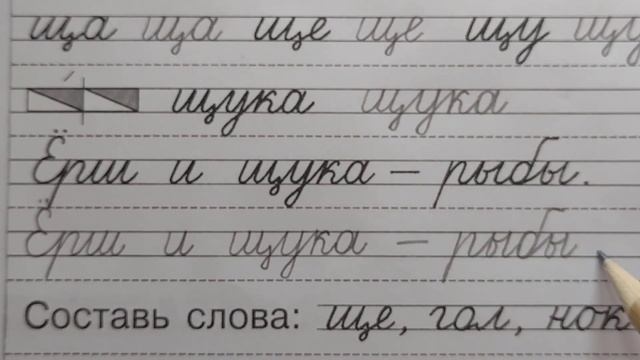 ща ща ще ще щу щу
щука щука
Ёрш и щука – рыбы.
Ёрш и щука – рыбы
Составь слова: ще, гол, нок